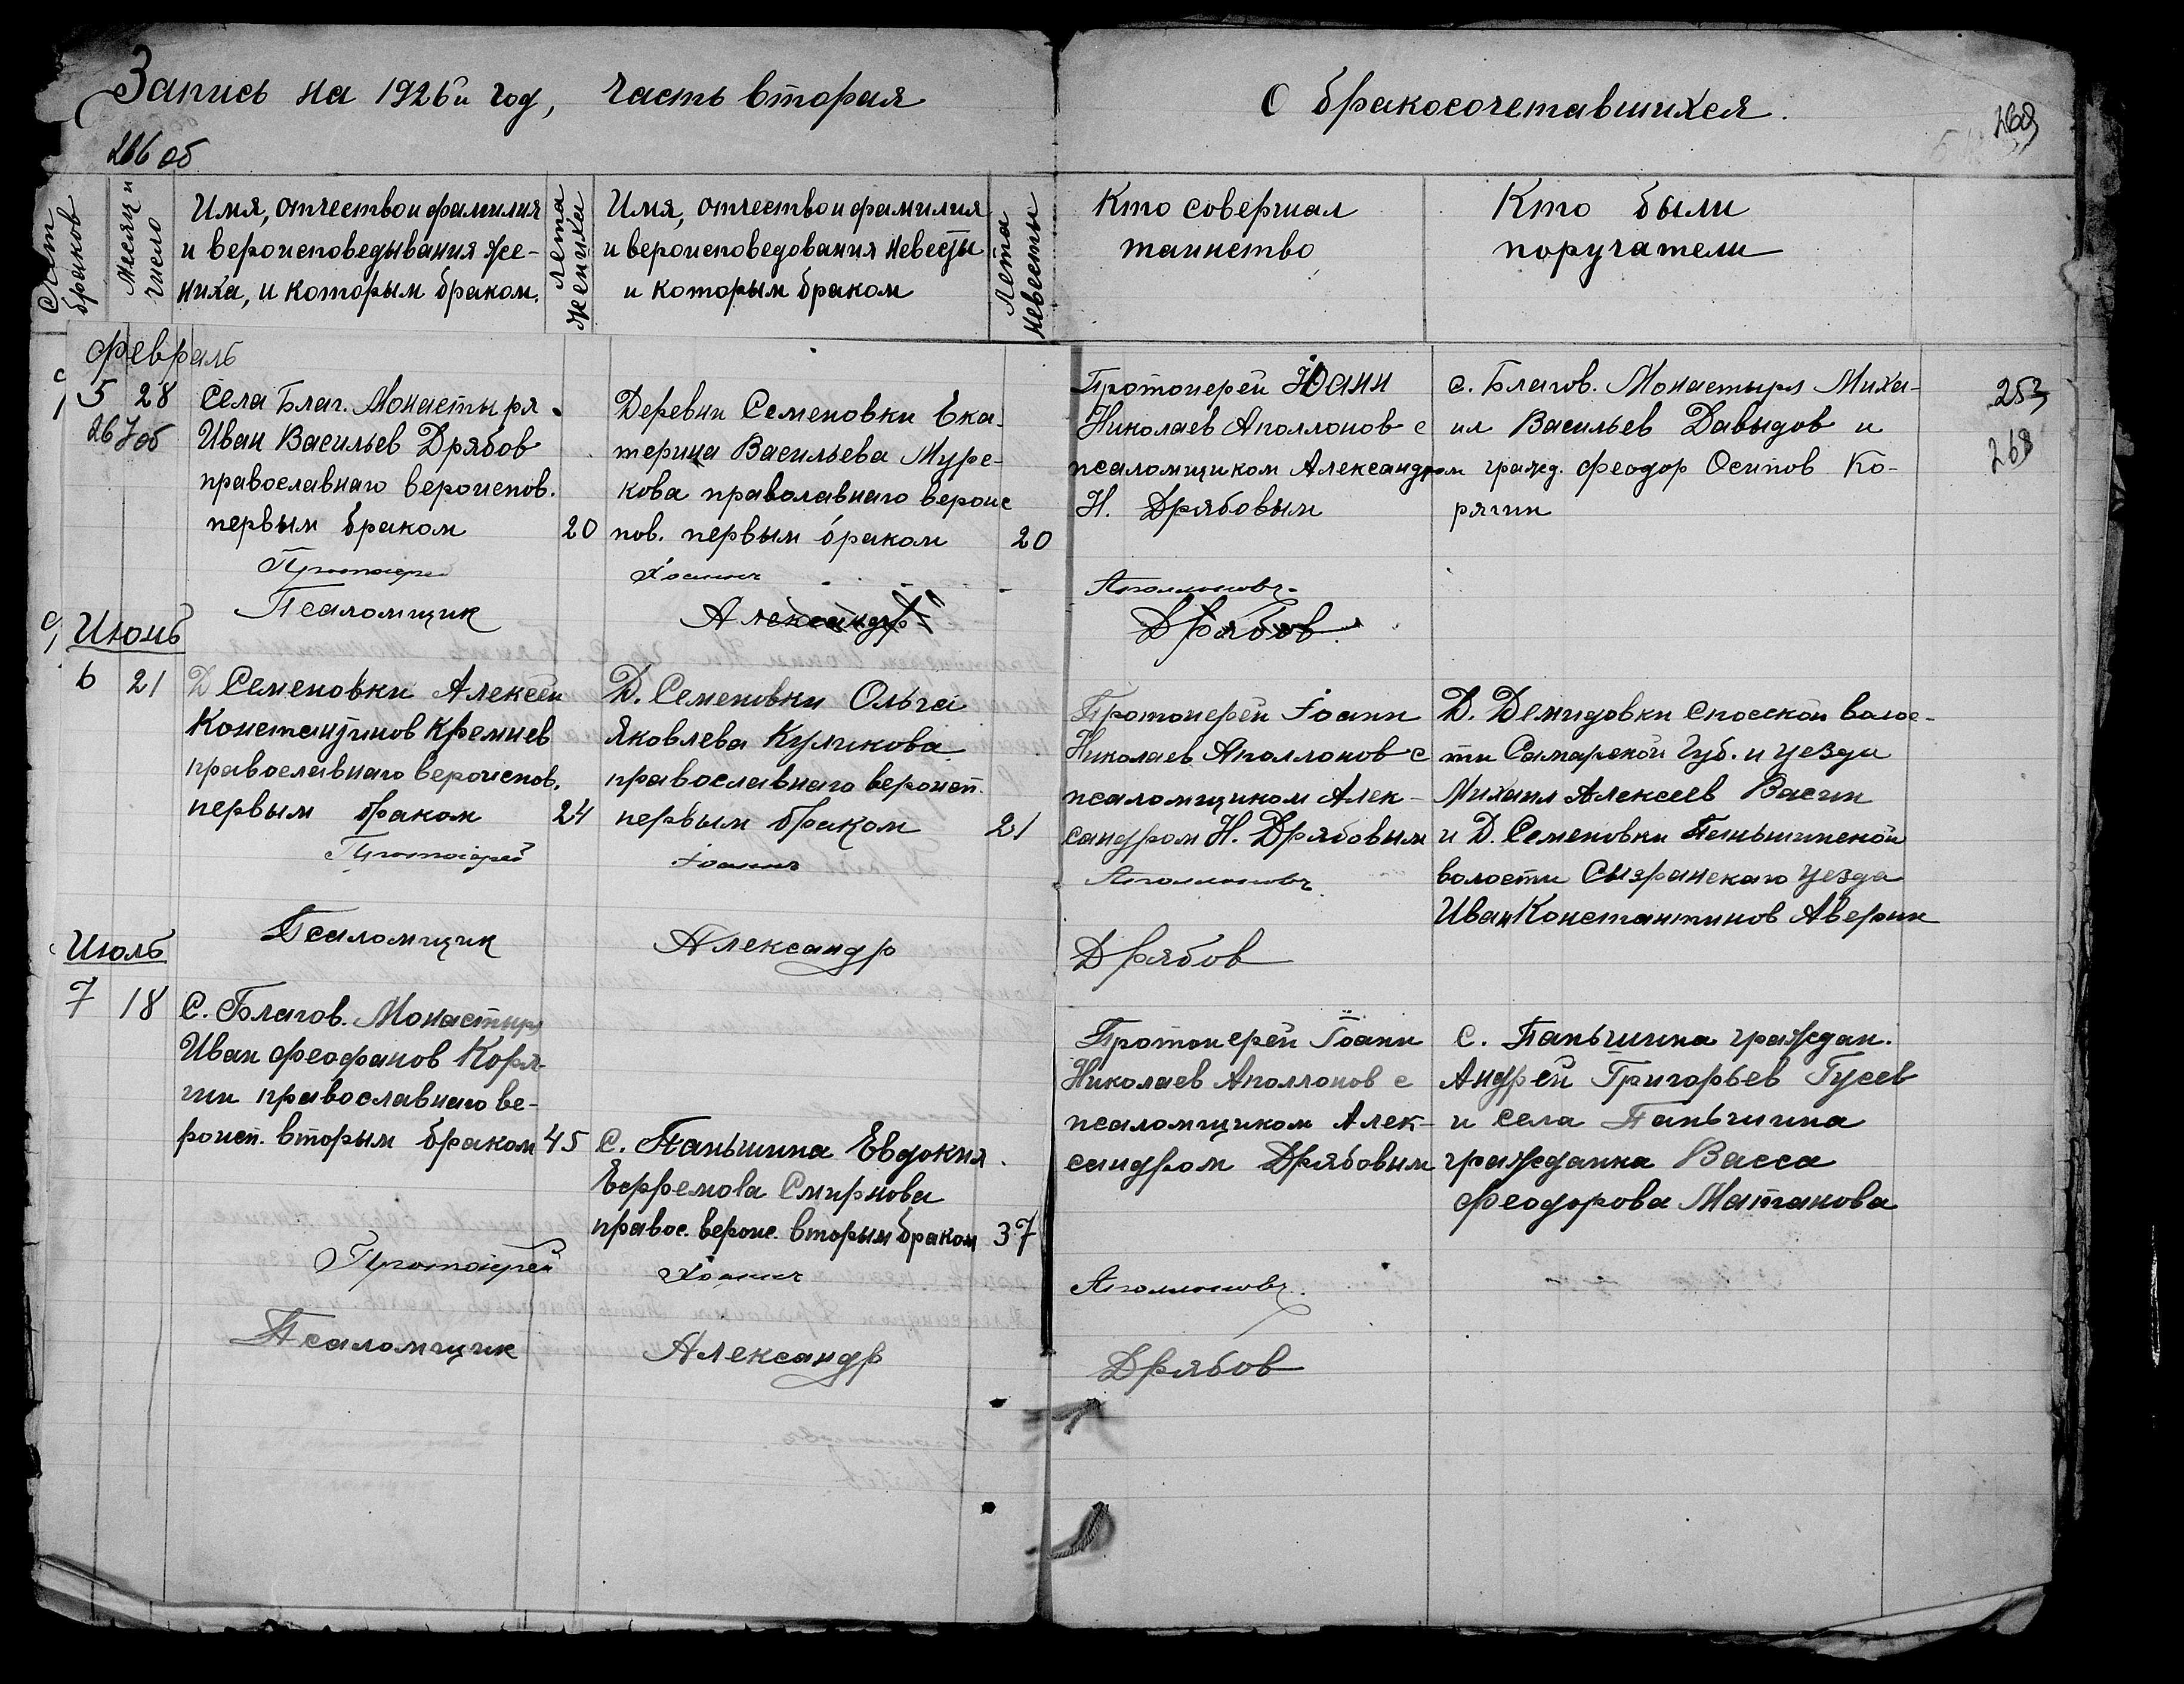 Запись на 1926й год, часть вторая
О бракосочетавшихся.
266 об
Счет браков
Месяц и число
Имя, отчество и фамилия
и вероисповедывания же-
ниха, и которым браком.
Лета жениха
Имя, отчество и фамилия
и вероисповедования невесты
и которым браком
Лета невесты
Кто совершал
таинство
Кто были
поручатели
Февраль
5 28
267об
Села Благ. Монастыря
Иван Васильев Дрябов
православнаго вероиспов.
первым браком 20
Деревни Семеновки Ека-
терина Васильева Муре-
кова праволавнаго вероис
пов. первым браком 20
Протоиерей Іоанн
Николаев Аполлонов с
псаломщиком Александром
Н. Дрябовым
с. Благов. Монастыря Миха-
ил Васильев Давыдов и
гражд. Феодор Осипов Ко-
рягин
253
268
Протоіерей Іоаннъ Аполлоновъ.
Псаломщик Александр Дрябов
Июнь
6 21
Д Семеновки Алексей
Константинов Кремнев
православнаго вероиспов.
первым браком 24
Д. Семеновки Ольга
Яковлева Куликова
православнаго вероисп.
первым браком 21
Протоиерей Іоанн
Николаев Аполлонов с
псаломщиком Алек-
сандром Н. Дрябовым
Д. Демидовки Спасской волос-
ти Самарской Губ. и уезда
Михаил Алексеев Васин
и Д. Семеновки Паньшинской
волости Сызранскаго уезда
Иван Константинов Аверин
Протоіерей Іоаннъ Аполлоновъ
Псаломщик Александр Дрябов
Июль
7 18
С. Благов. Монастыр
Иван Феофанов Коря-
гин православнаго ве-
роисп. вторым браком 45
С. Паньшина Евдокия
Ефремова Смирнова
правос. вероис. вторым браком 37
Протоиерей Іоанн
Николаев Аполлонов с
псаломщиком Алек-
сандром Дрябовым
С. Паньшина граждан.
Андрей Григорьев Гусев
и села Паньшина
гражданка Васса
Феодорова Матанова
Протоіерей Іоаннъ Аполлоновъ.
Псаломщик Александр Дрябов